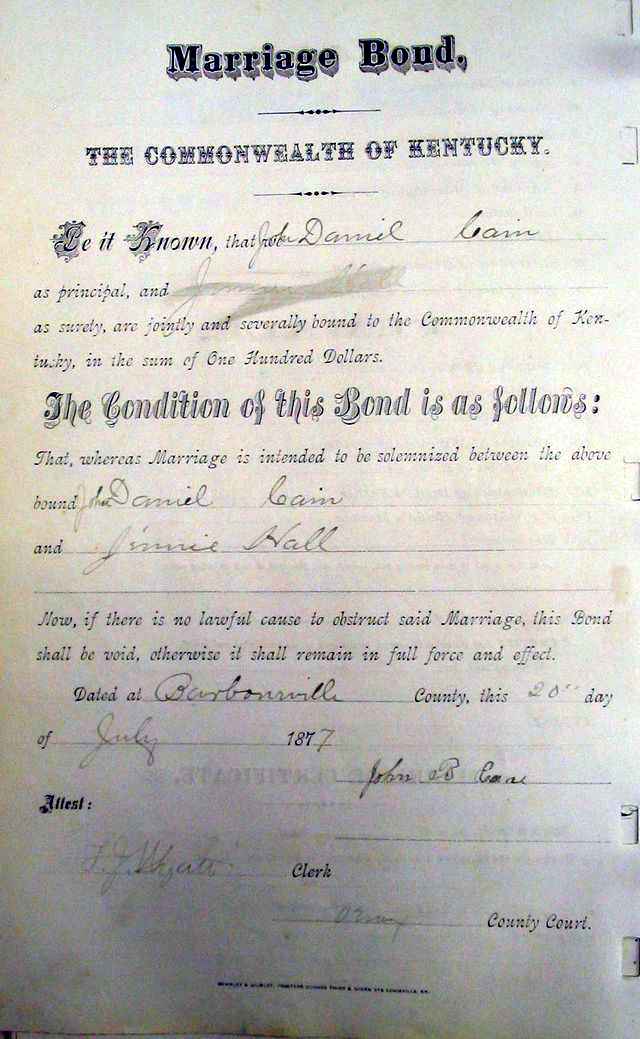 Marriage Bond,
THE COMMONWEALTH OF KENTUCKY.
Be it Known, that we John Daniel Cain
as principal, and Jinnie Hall
as surety, are jointly and severally bound to the Commonwealth of Ken-
tucky, in the sum of One Hundred Dollars.
The Condition of this Bond is as follows:
That, whereas Marriage is intended to be solemnized between the above
bound John Daniel Cain
and Jinnie Hall
Now, if there is no lawful cause to obstruct said Marriage, this Bond
shall be void, otherwise it shall remain in full force and effect.
Dated at Barbourville County, this 20" day
of July 1877
John B
Attest:
Clerk
County Court.